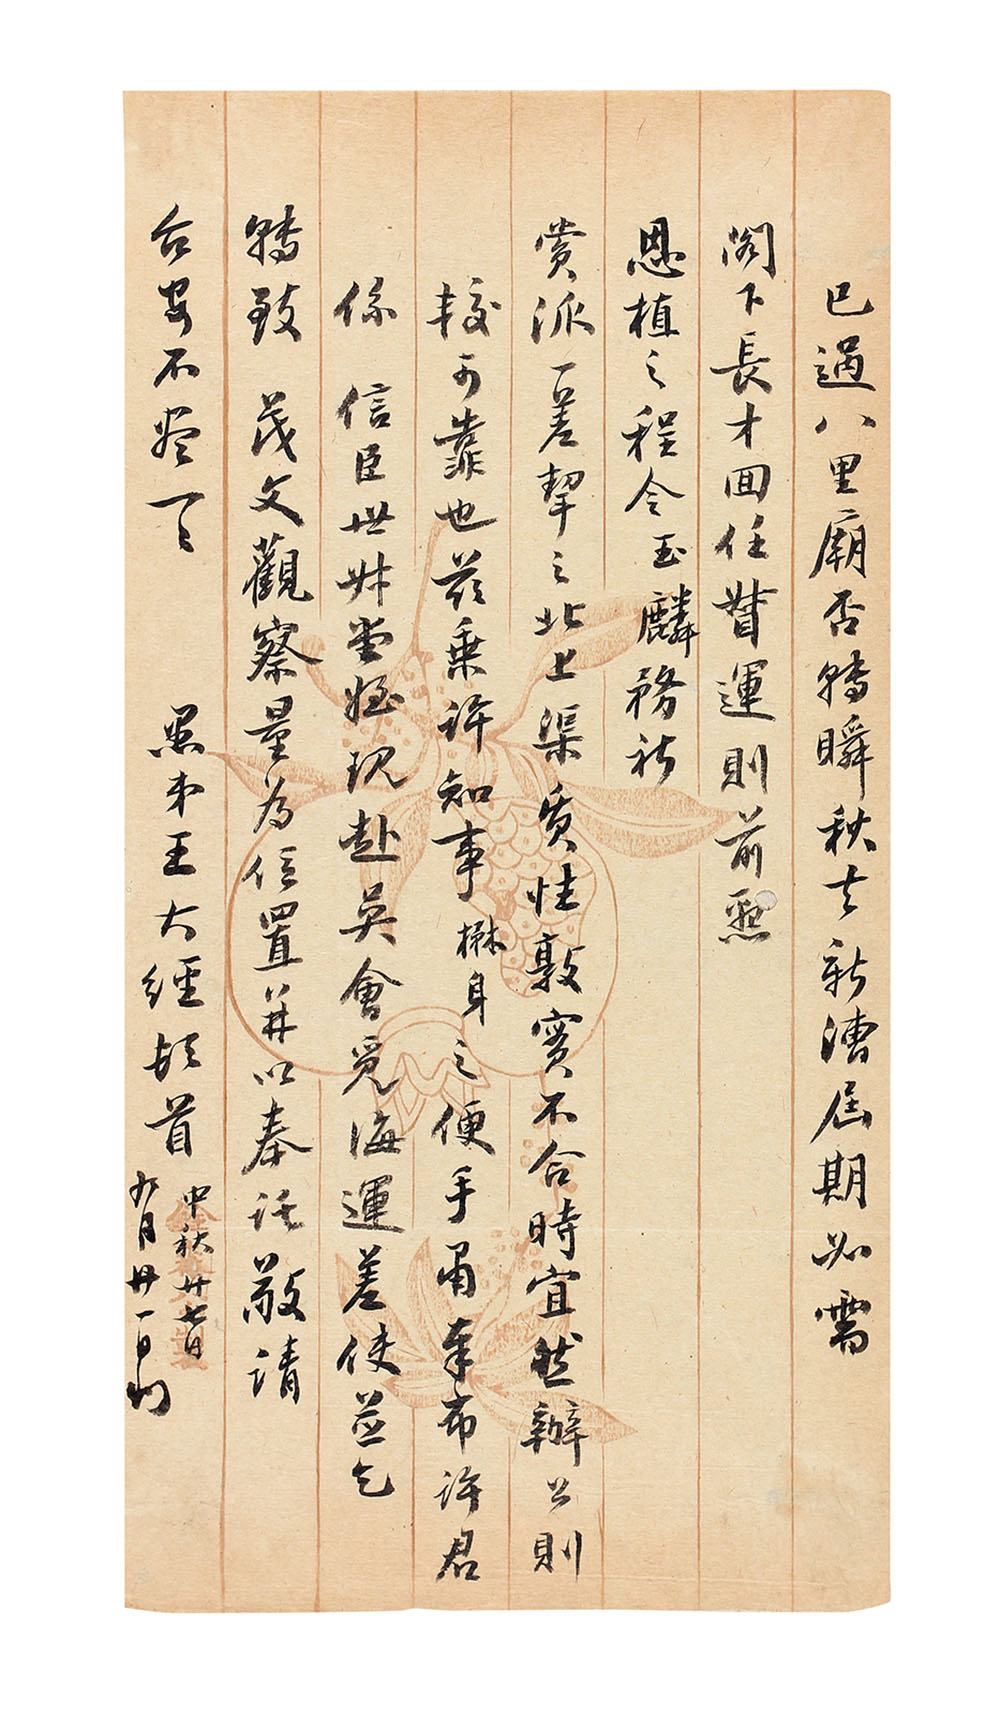 已過八里廟否轉瞬秋去新漕屆期必需
閣下長才回任督運則前懇
恩植之程令玉麟務祈
賞派一差挈之北上渠質性敦實不合時宜然辦公則
較可靠也茲乘許知事楙身之便手肅奉布許君
係 信臣世叔堂姪現赴吳會覓海運差使並乞
轉致 茂文觀察量為位置並以奉託敬請
台安不盡一一 愚弟王大經頓首
中秋廿七日
九月廿一日到